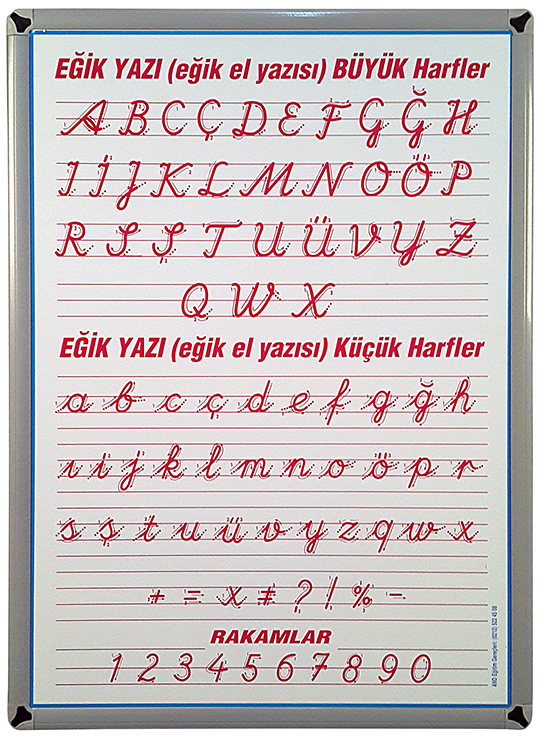 EĞİK YAZI (eğik el yazısı) BÜYÜK Harfler
A B C Ç D E F G Ğ H
I İ J K L M N O Ö P
R S Ş T U Ü V Y Z
Q W X
EĞİK YAZI (eğik el yazısı) Küçük Harfler
a b c ç d e f g ğ h
ı i j k l m n o ö p r
s ş t u ü v y z q w x
+ = x ≠ ? ! % -
RAKAMLAR
1 2 3 4 5 6 7 8 9 0
AND Eğitim Gereçleri: (0212) 522 45 08